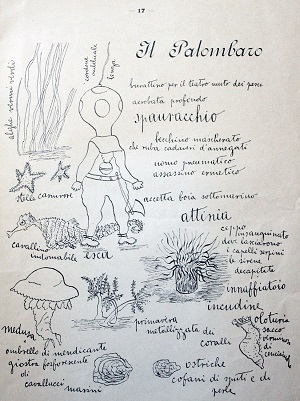 17
Il Palombaro
alghe vermi verdi
cordone ombelicale
burattino per il teatro muto dei pesci
acrobata profondo
spauracchio
becchino mascherato
che ruba cadaveri d'annegati
uomo pneumatico
assassino ermetico
stelle carnivore
accetta boia sottomarino
attinia
cavallino
indomabile
esca
ceppo
insanguinato
dove lasciarono
i capelli serpini
le sirene
decapitate
innaffiatoio
incudine
medusa
ombrello di mendicante
giostra fosforescente
di
cavallucci
marini
primavera
metallizzata dei
coralli
oloturia
sacco
ostriche
cofani di sputi e di
perle